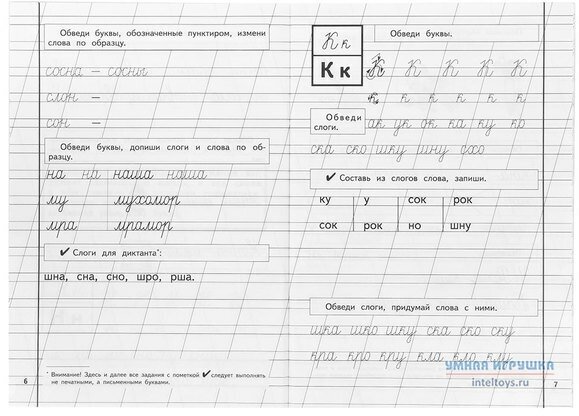 Обведи буквы, обозначенные пунктиром, измени
слова по образцу.
сосна – сосны
слон –
сон –
Обведи буквы, допиши слоги и слова по об-
разцу.
на на наша наша
му мухомор
мра мрамор
✔ Слоги для диктанта*:
шна, сна, сно, шро, рша.
* Внимание! Здесь и далее все задания с пометкой ✔ следует выполнять
не печатными, а письменными буквами.
6
К к
К к
Обведи буквы.
К К К К К
к к к к к к
Обведи
слоги.
ак ук ок ка ку кр
ска ско шку шну схо
✔ Составь из слогов слова, запиши.
ку у сок рок
сок рок но шну
Обведи слоги, придумай слова с ними.
шка шко шку ска ско ску
кра кро кру кла кло клу
УМНАЯ ИГРУШКА
inteltoys.ru
7